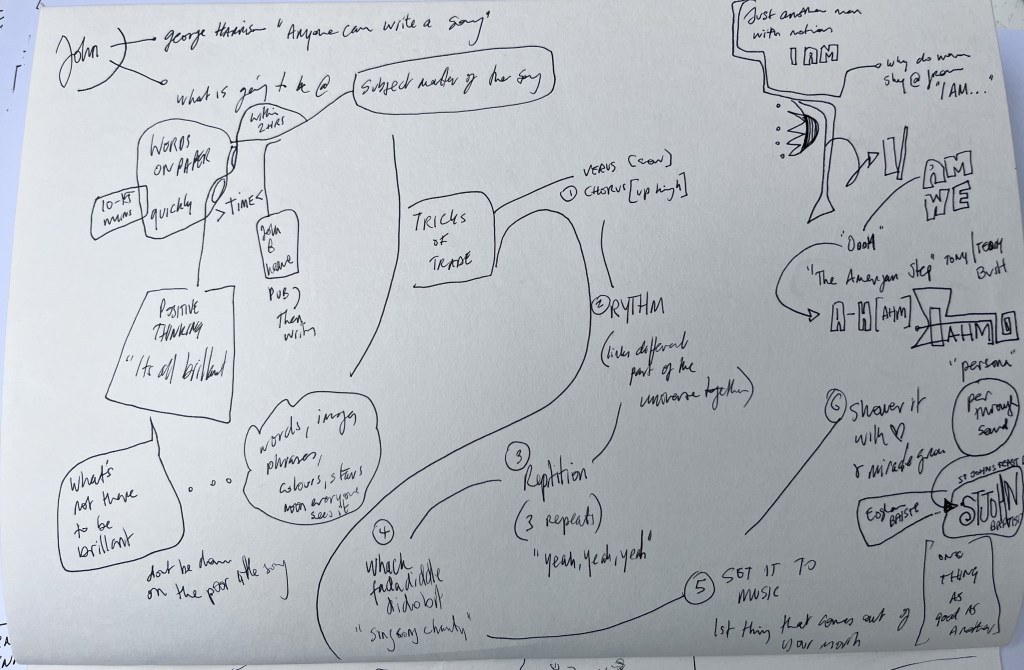 John
george Harrison "Anyone can write a song"
what is going to be @
Subject matter of the song
within
2HRS
WORDS
ON PAPER
quickly
10-15
mins
>TIME<
John
B
PUB)
Then
write
POSITIVE
THINKING
"Its all brilliant
What's
not there
to be
brillant
...
words, images
phrases,
colours, stars
moon everyone
sees it
dont be down
on the poor little song
TRICKS
OF
TRADE
VERUS [low]
① CHORUS [up high]
② RYTHM
(links different
part of the
universe together)
③
Reptition
(3 repeats)
"yeah, yeah, yeah"
④
Whack
didobit
"sing song
⑤ SET IT TO
MUSIC
1st thing that comes out of
your mouth
⑥ Shower it
with ♡
& miracle grow
Just another man
with notions
I AM
why do
shy @ from
"I AM..."
AM
WE
"Doom"
"The American Step" TONY/TEDDY
A-H [AHM]
AHM
"persona"
per
through
sound
ST JOHNS
ST JOHN
BAPTIST
ONE
THING
AS
good AS
Another